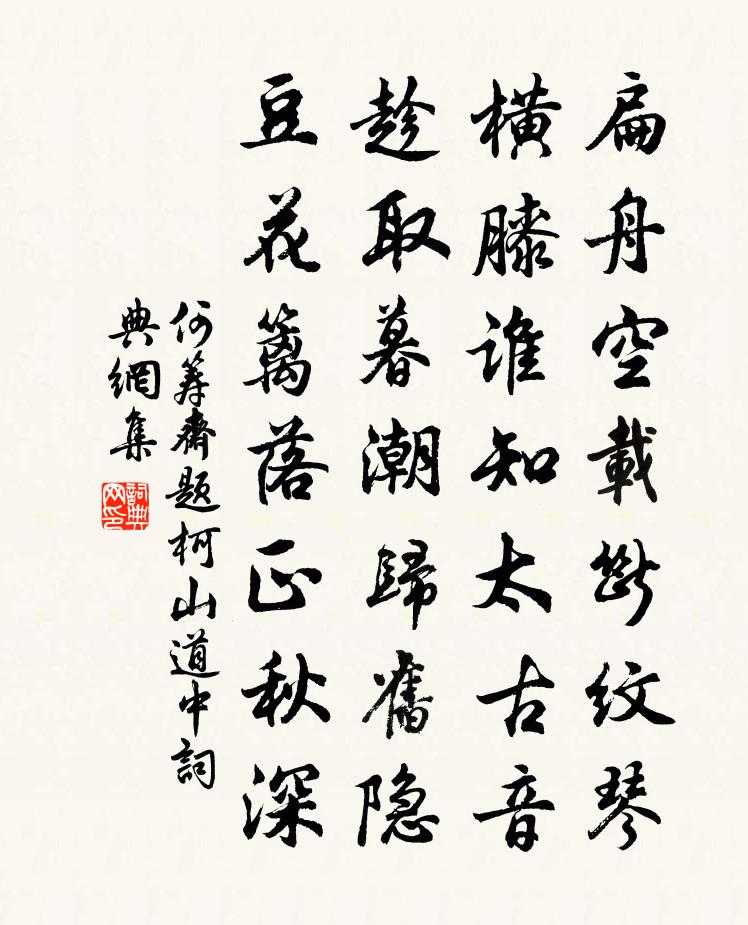 扁舟空載斷紋琴
橫膝誰知太古音
趁取暮潮歸舊隐
豆花籬落正秋深
何籌齋題柯山道中詞
典網集
詞典
网印